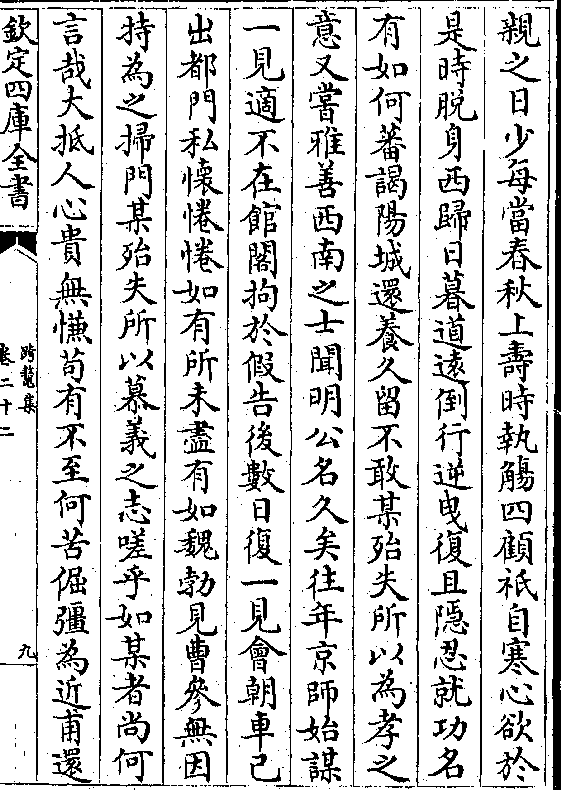 親之日少每當春秋上壽時執觴四顧祇自寒心欲於
是時脫身西歸日暮道遠倒行逆曳復且隱忍就功名
有如何蕃謁陽城還養久留不敢某殆失所以為孝之
意又嘗雅善西南之士聞明公名久矣往年京師始謀
一見適不在館閣拘於假告後數日復一見會朝車已
出都門私懐惓惓如有所未盡有如魏勃見曹參無因
持為之掃門某殆失所以慕義之志嗟乎如某者尚何
言哉大抵人心貴無慊苟有不至何苦倔彊為近甫還
欽定四庫全書
跨鼇集
卷二十二
九